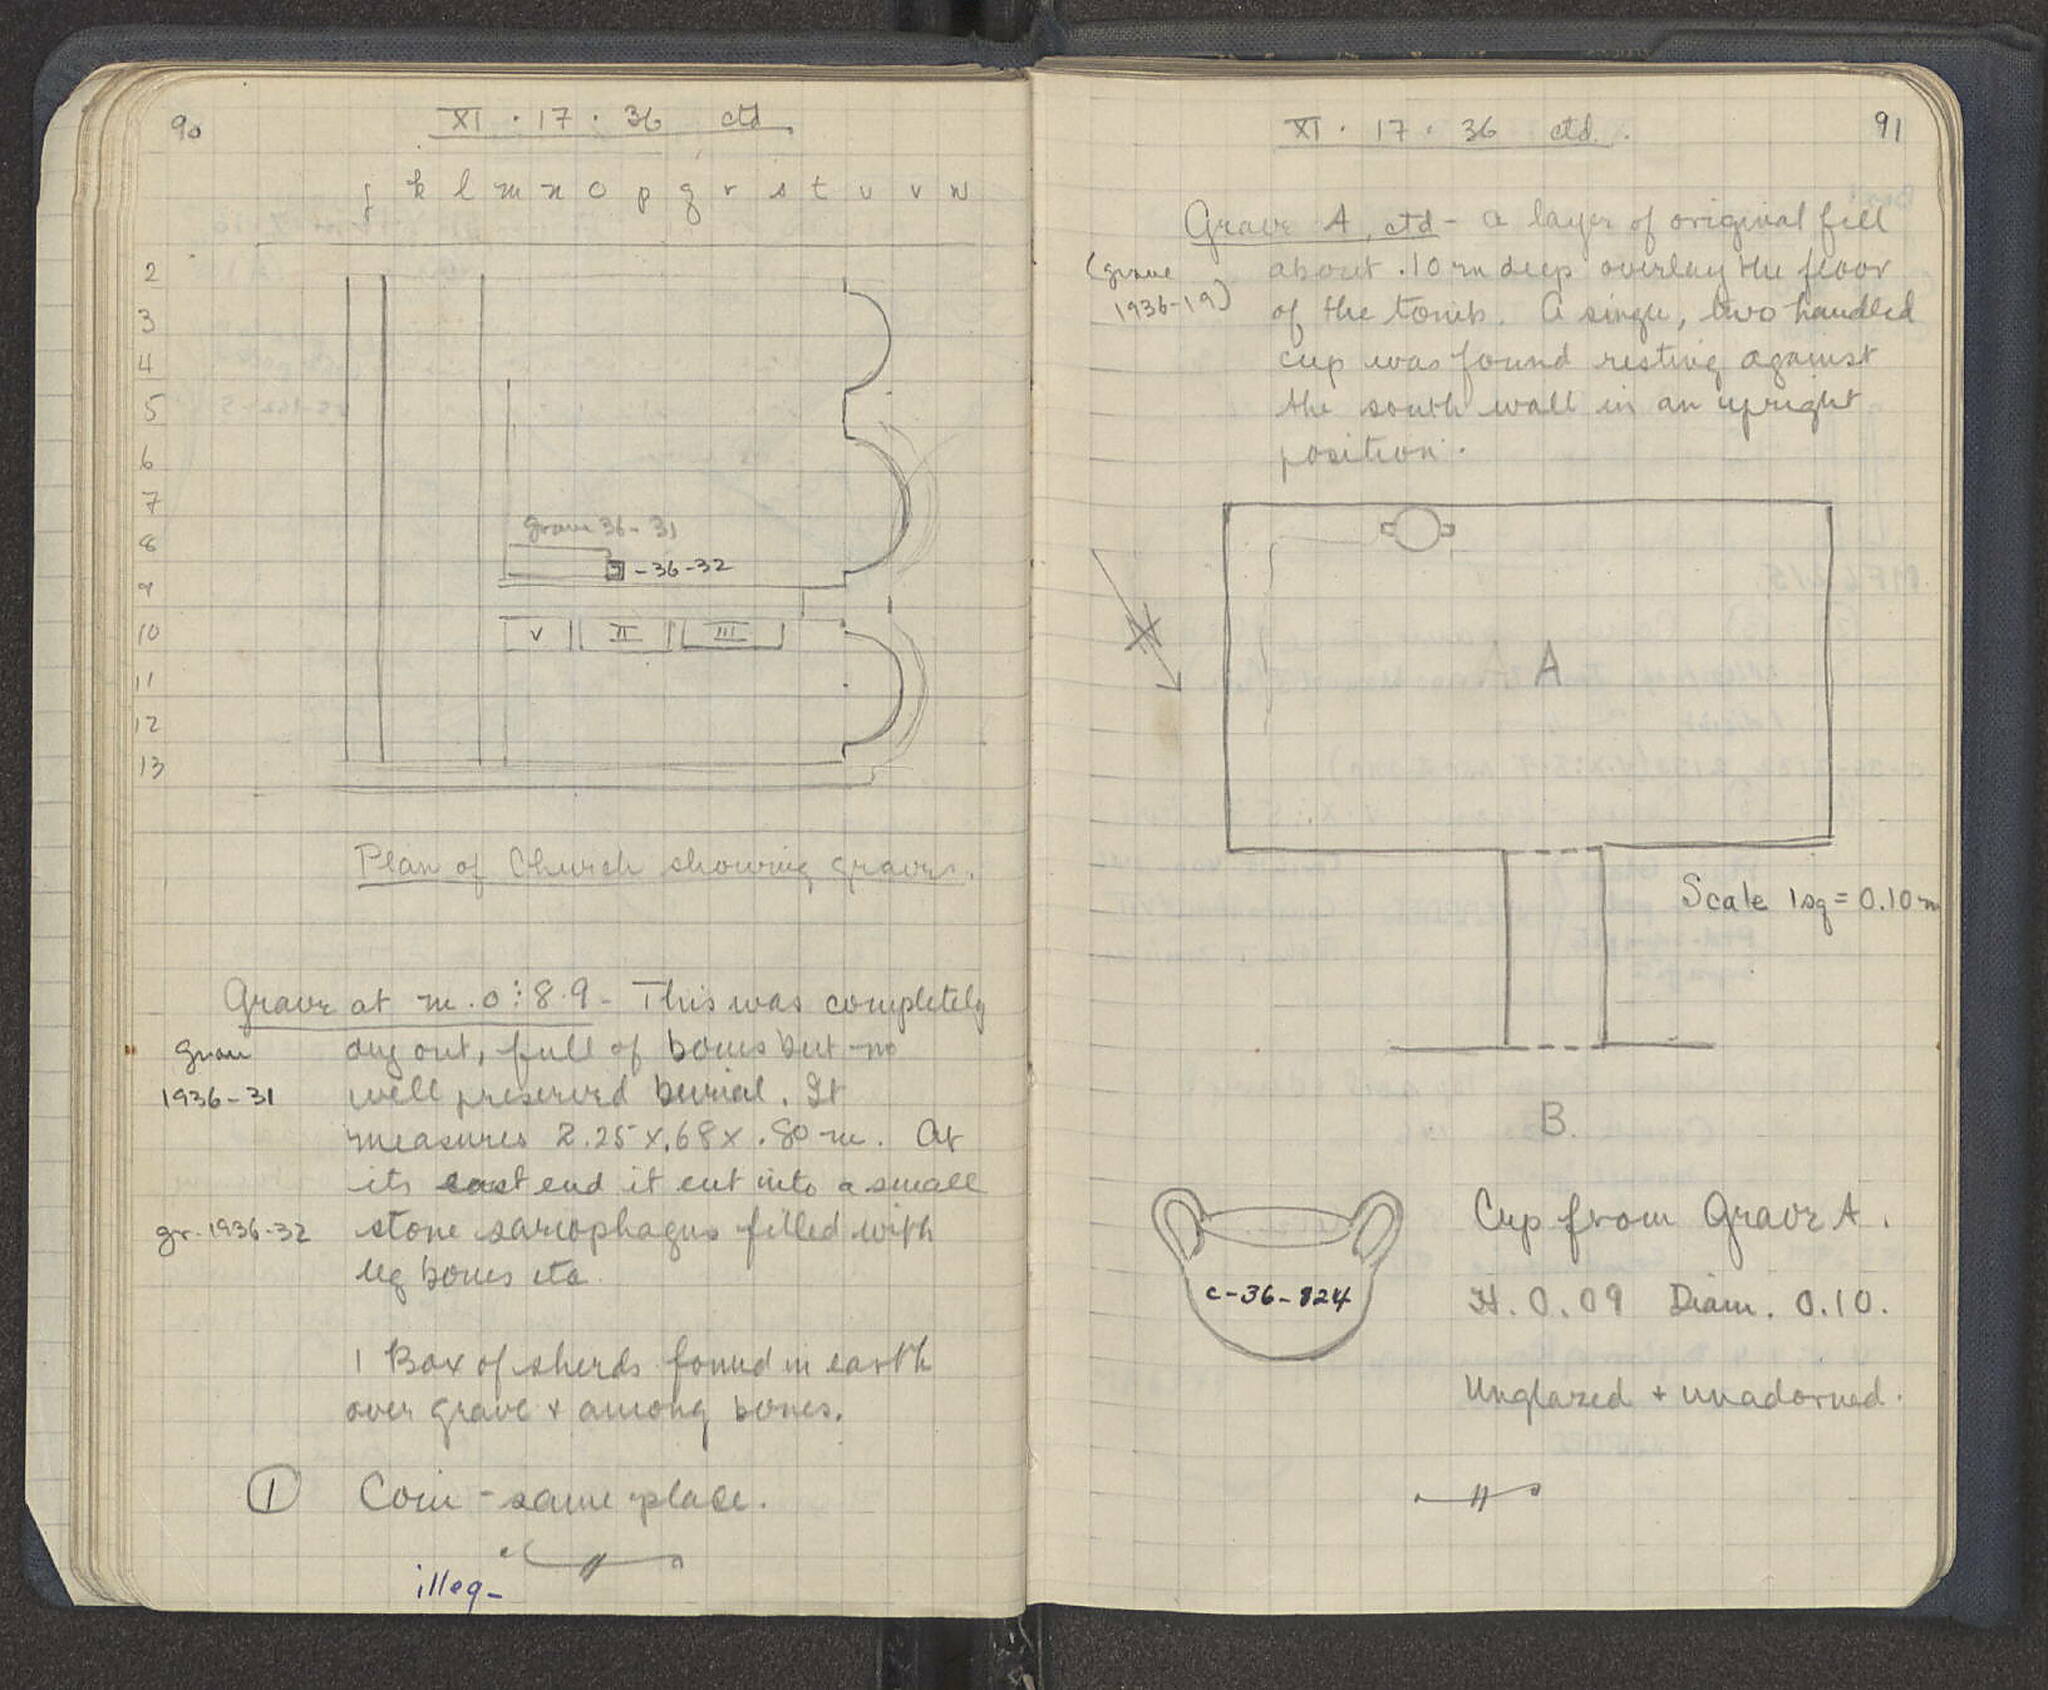 90
XI . 17 . 36 ctd.
j k l m n o p q r s t u v w
2
3
4
5
6
7
8
9
10
11
12
13
Grave 36-31
-36-32
V II III
Plan of Church showing graves.
Grave at m.o:8.9 - This was completely
Grave
1936-31
dug out, full of bones but no
well preserved burial. It
measures 2.25 x .68 x .80 m. At
its east end it cut into a small
gr. 1936-32
stone sarcophagus filled with
leg bones etc.
1 Box of sherds found in earth
over grave + among bones.
1 Coin - same place.
illeg-
XI . 17 . 36 ctd.
91
Grave A, ctd - a layer of original fill
(grave
1936-19)
about .10 m deep overlay the floor
of the tomb. A single, two handled
cup was found resting against
the south wall in an upright
position.
N
A
Scale 1sq = 0.10 m
B.
c-36-824
Cup from Grave A.
H. 0.09 Diam. 0.10.
Unglazed + unadorned.